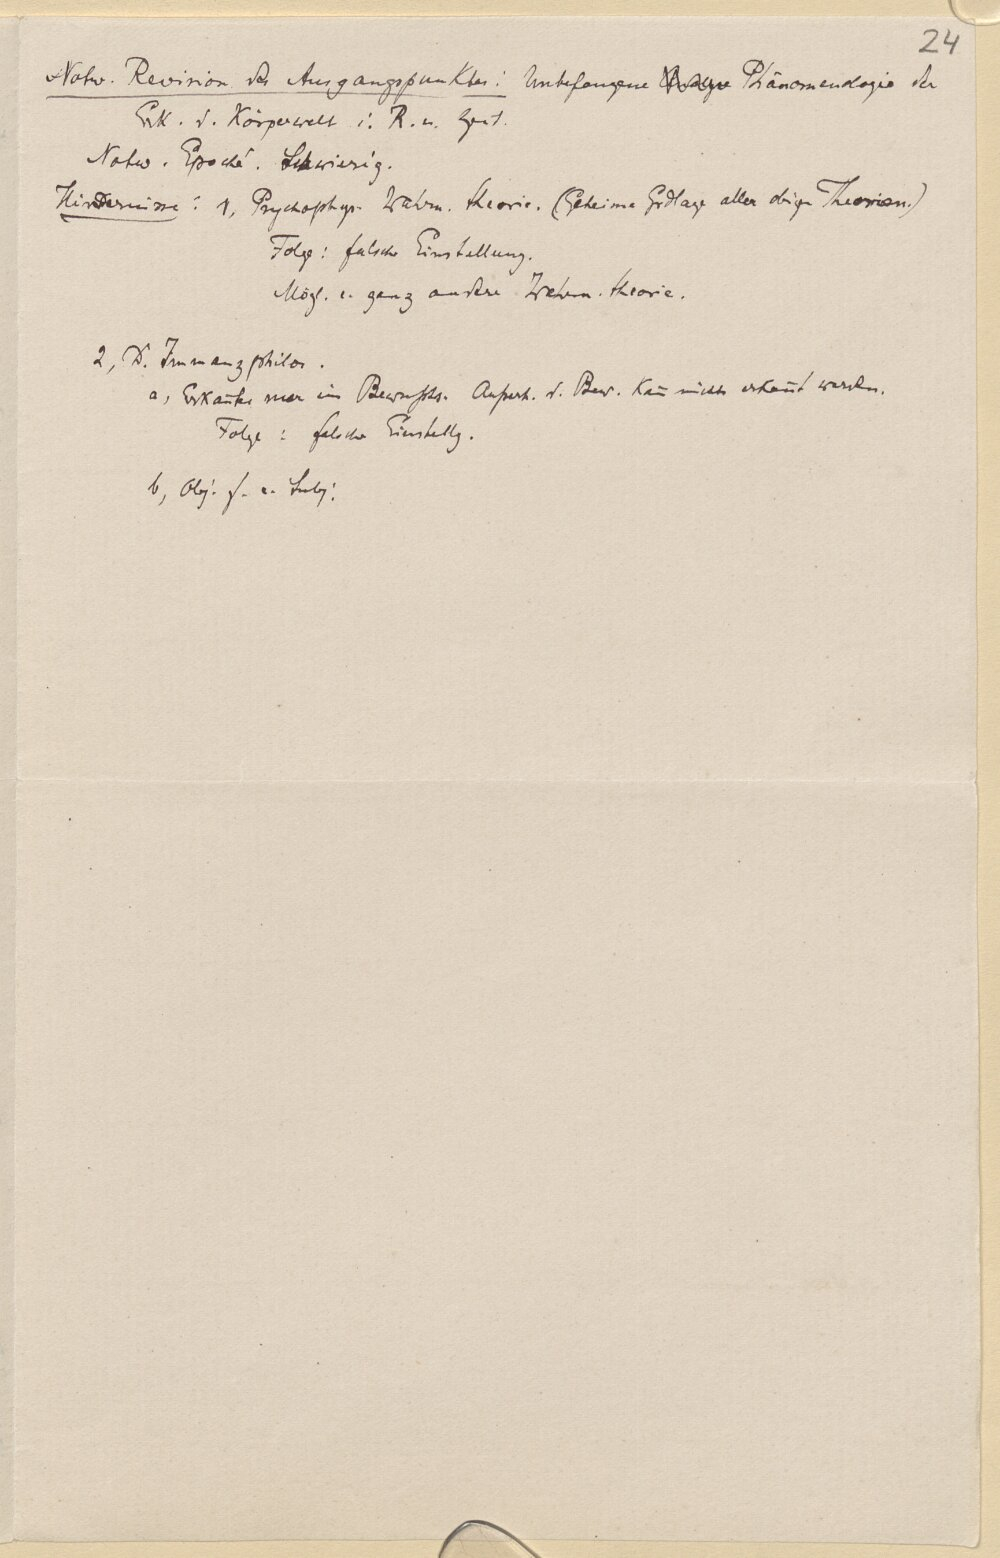 24
Notw. Revision des Ausgangspunktes: Unbefangene Phänomenologie der
Erk. d. Körperwelt i. R. u. Zeit.
Notw. Epoché. Schwierig.
Hindernisse: 1, Psychophys. Wahrn. theorie. (Geheime Grdlage aller obigen Theorien.)
Folge: falsche Einstellung.
Mögl. e. ganz andere Wahrn. theorie.
2, D. Immanzphilos.
a, Erkannte nur im Bewußts. Außerh. d. Bew. kann nichts erkannt werden.
Folge: falsche Einstellg.
b, Obj. f. e. Subj.